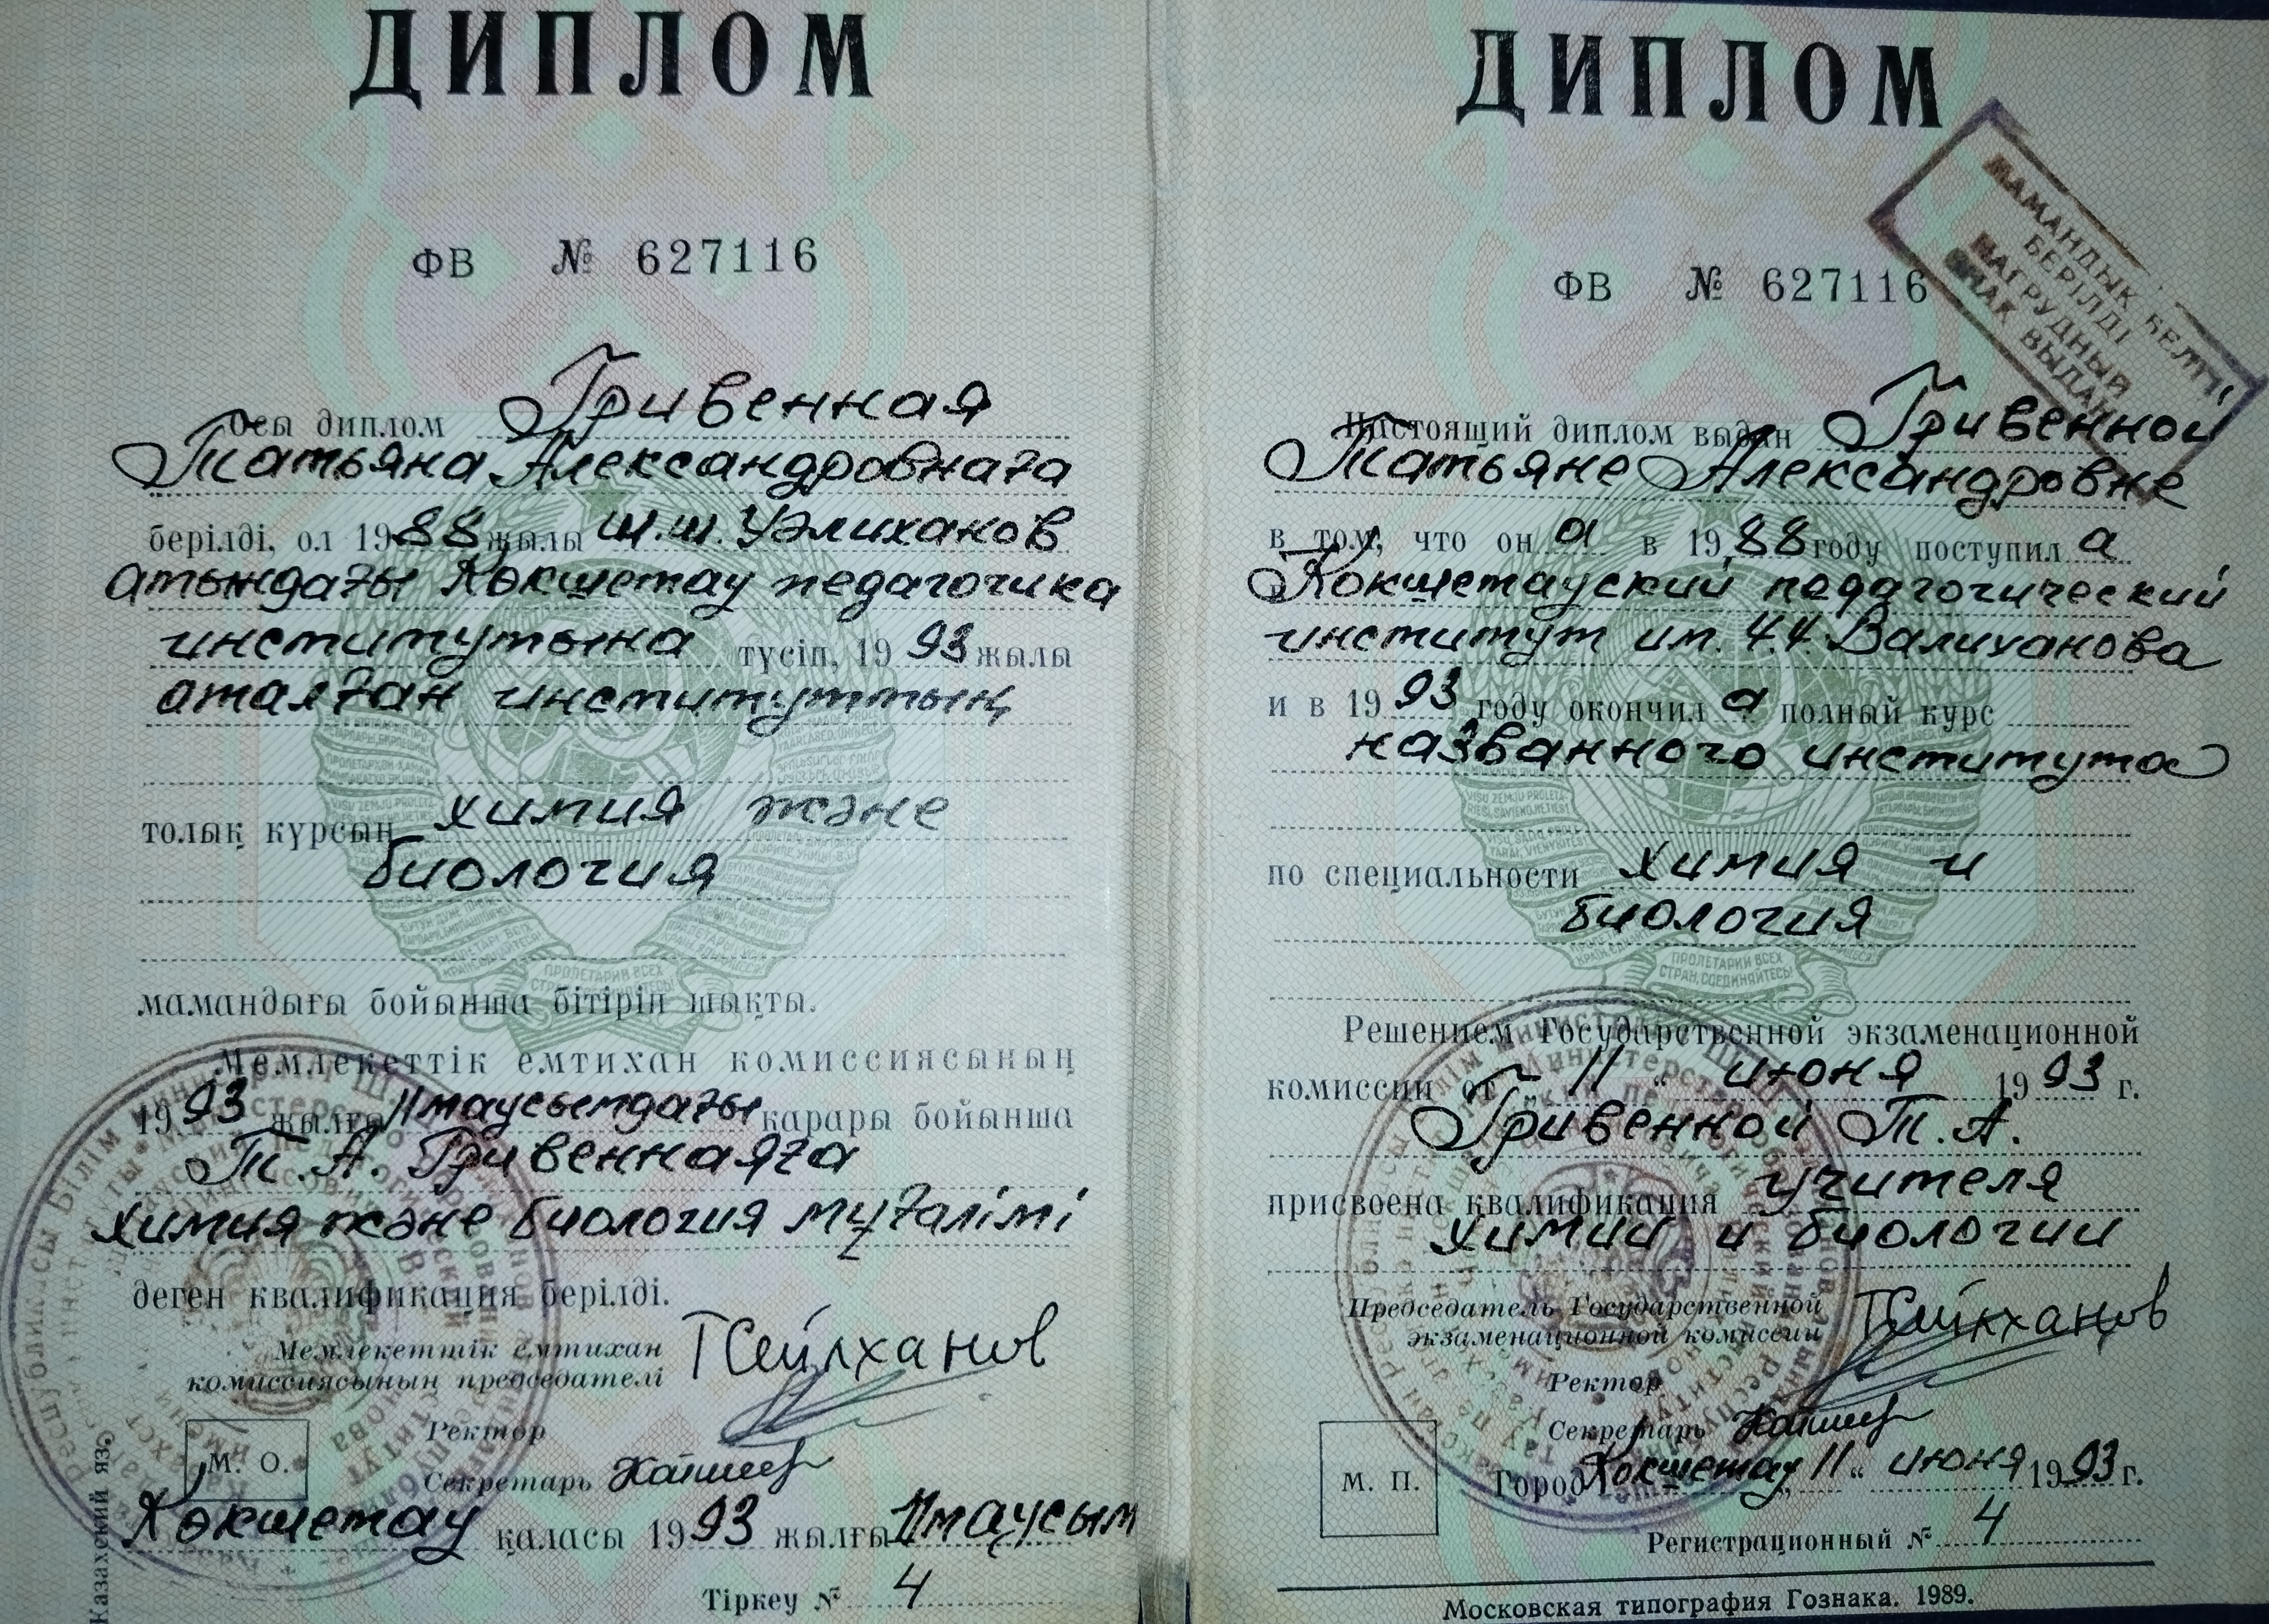 ДИПЛОМ
ФВ № 627116
Осы диплом Гривенная
Татьяна Александровнаға
берілді, ол 1988 жылы Ш.Ш. Уәлиханов
атындағы Көкшетау педагогика
институтына түсіп, 1993 жылы
аталған институттың
толық курсын химия және
биология
мамандығы бойынша бітіріп шықты.
Мемлекеттік емтихан комиссиясының
1993 жылғы 11 маусымдағы қарары бойынша
Т.А. Гривеннаяға
химия және биология мұғалімі
деген квалификация берілді.
Мемлекеттік емтихан
комиссиясының председателі
Т Сейлханов
Ректор
М. О.
Секретарь
Көкшетау қаласы 1993 жылғы 11 маусым
Тіркеу № 4
Казахский яз.
ДИПЛОМ
МАМАНДЫҚ БЕЛГІ
БЕРІЛДІ
НАГРУДНЫЙ
ЗНАК ВЫДАН
ФВ № 627116
Настоящий диплом выдан Гривенной
Татьяне Александровне
в том, что он а в 1988 году поступил а
Кокшетауский педагогический
институт им. Ч.Ч. Валиханова
и в 1993 году окончил а полный курс
названного института
по специальности химия и
биология
ПРОЛЕТАРИИ ВСЕХ
СТРАН, СОЕДИНЯЙТЕСЬ!
Решением Государственной экзаменационной
комиссии от „ 11 “ июня 1993 г.
Гривенной Т.А.
присвоена квалификация учителя
химии и биологии
Председатель Государственной
экзаменационной комиссии
Ректор
Секретарь
М. П.
Город Кокшетау „ 11 “ июня 1993 г.
Регистрационный № 4
Московская типография Гознака. 1989.